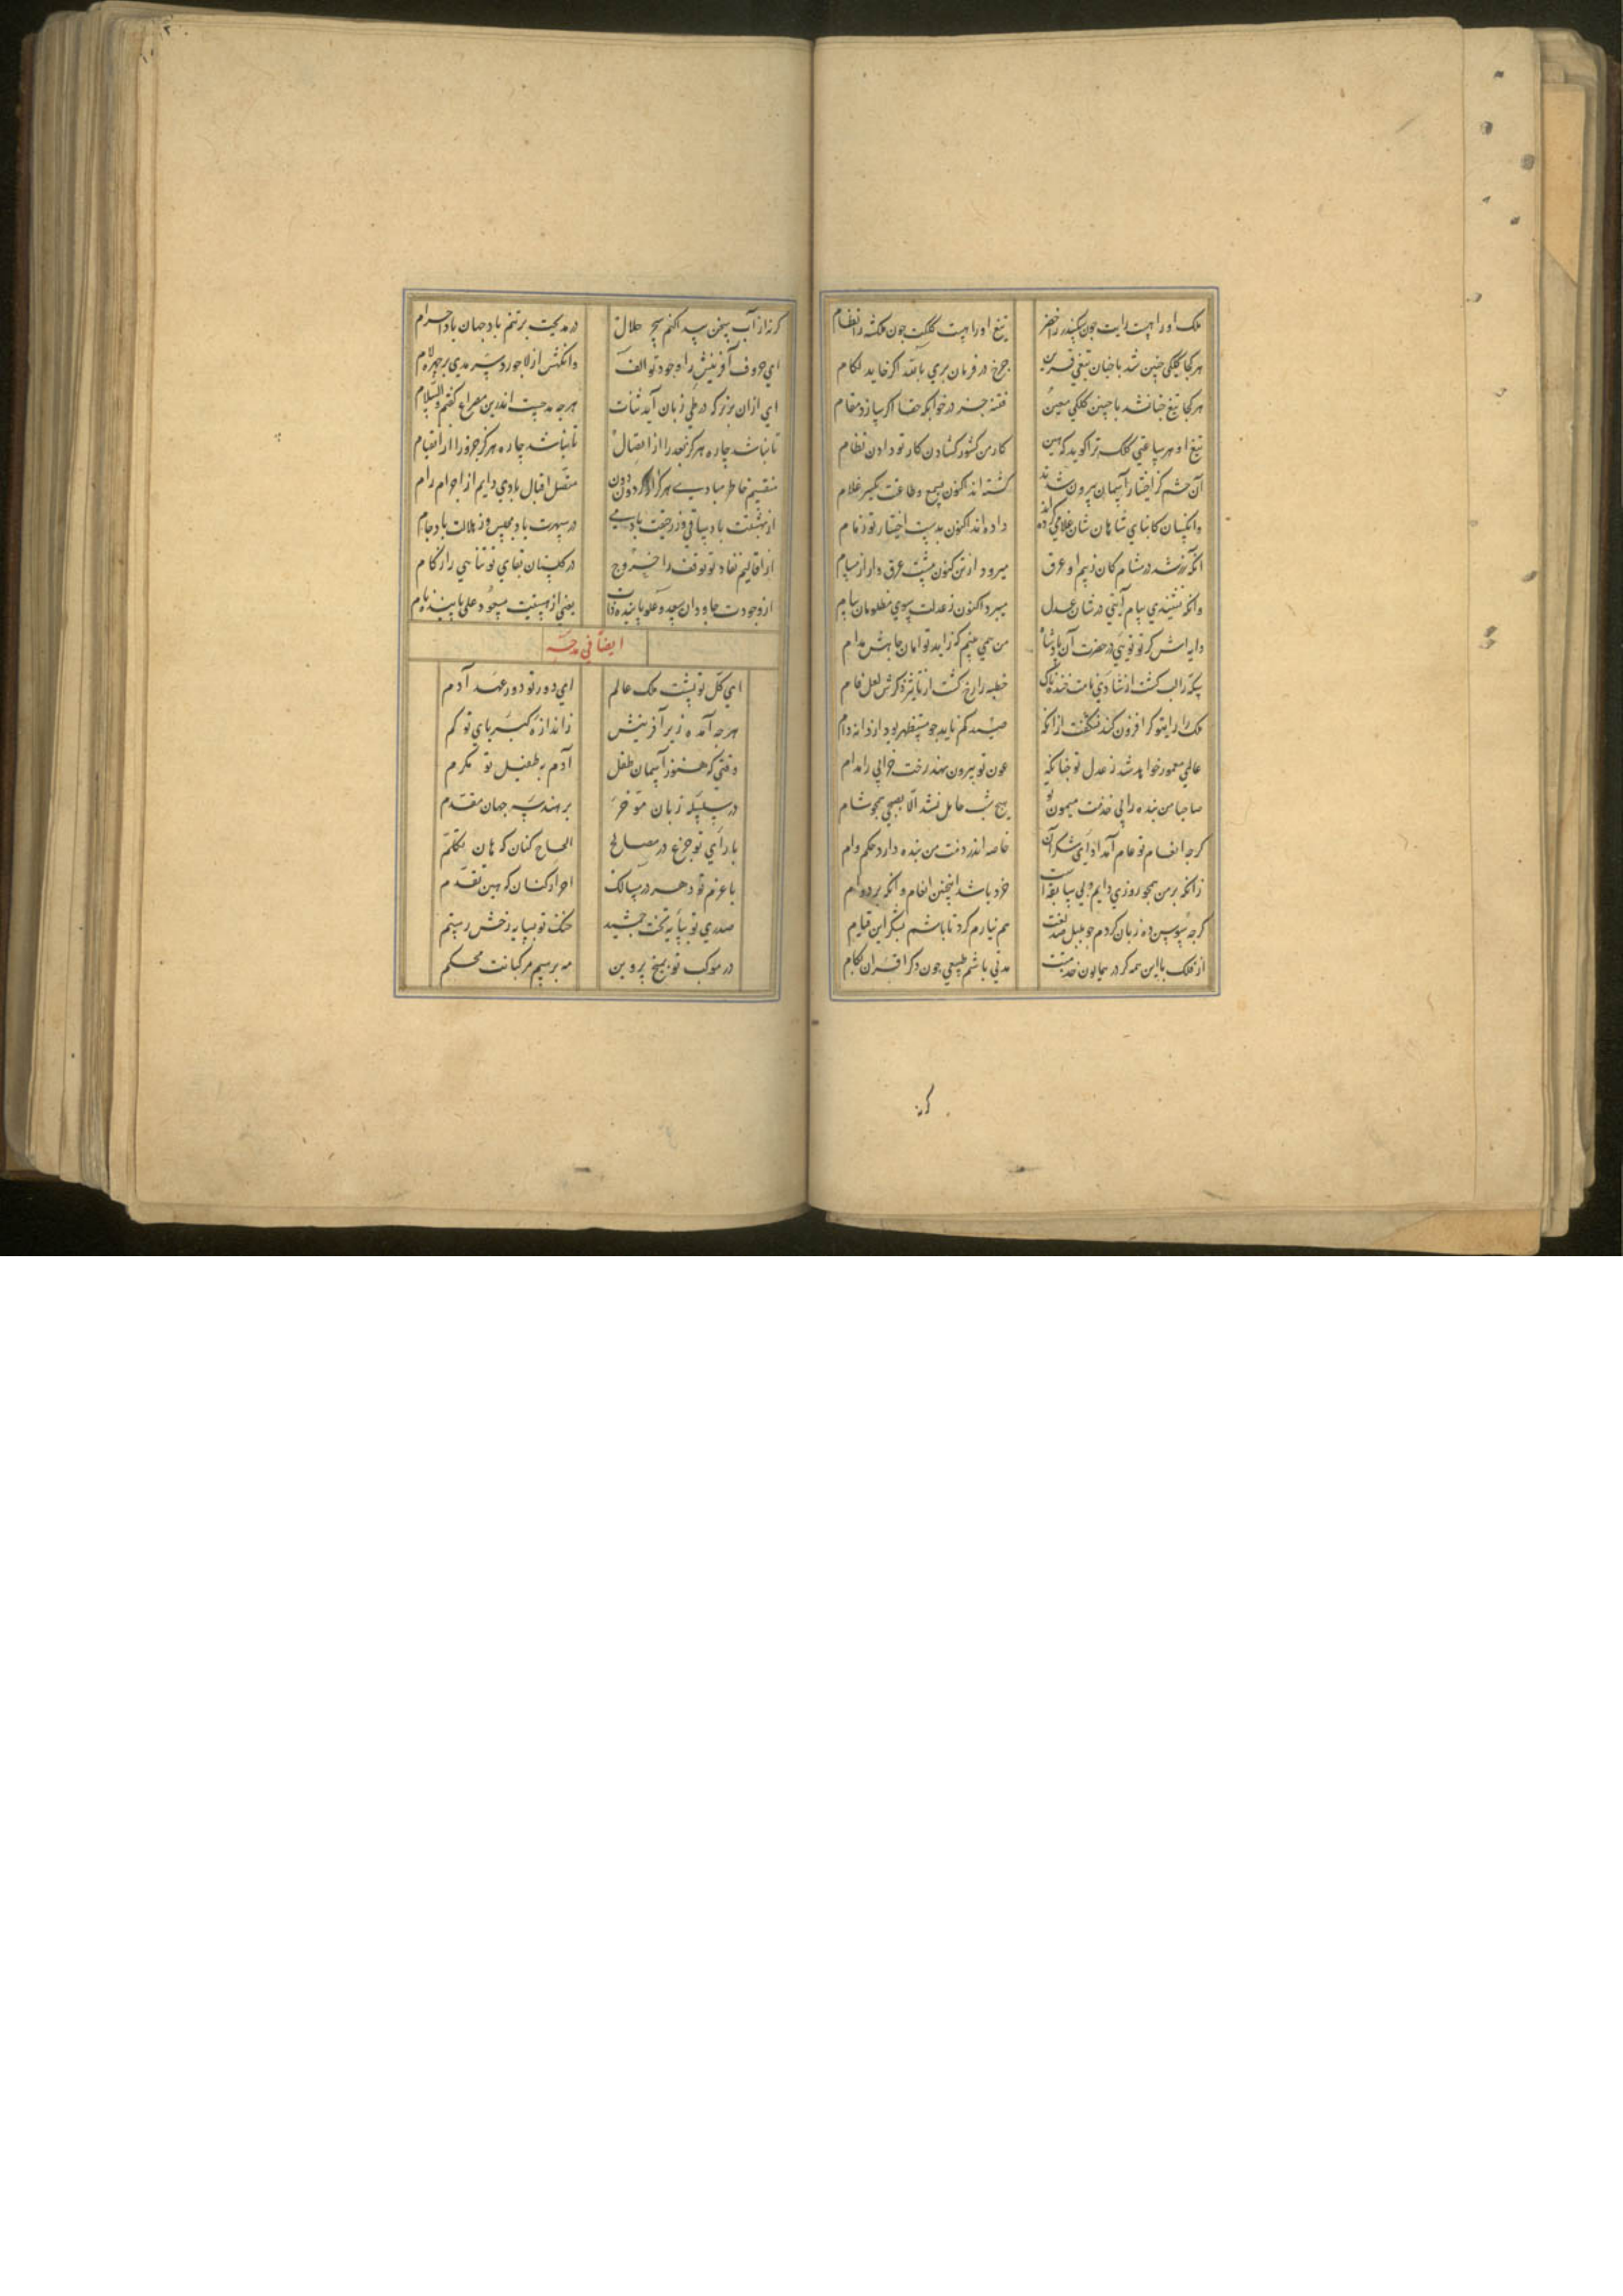 ملک او را هست رایت چون سکندر را خضر تیغ او را هست کلکت چون فکشه را نظام
هر کجا کلکی چنین شد با چنان تیغی قرین چرخ در فرمان بری بالله اگر خاید لکام
هر کجا تیغ چنان شد با چنین کلکی معین فتنه جز در خوابکه حقا اکر سازد مقام
تیغ او هر ساعتی کلک ترا کوید که هین کار من کشور کشادن کار تو دادن نظام
آن حشم کز اختیار آسمان بیرون شدند کشته اند اکنون بسمع و طاعتت یکسر غلام
وانکسان کابنای شاهان شان غلامی کرده اند داده اند اکنون بدست اختیار تو زمام
انکه نزشد در مشام کان ز بیم او عرق میرود از تن کنون پیشت عرق وار از مسام
وانکه نشنیدی پیام آیتی در شان عدل میبرد اکنون ز عدلت سوی مظلومان پیام
دایه اش کر تو تویی در حضرت آن پادشاه من همی بینم که زاید توامان جاهش مدام
سکه را لب کشت از شادی نامت خنده ناک خطبه را رخ کشت از تاثیر ذکرش لعل فام
ملک را رایتو کر افزون کند نشکفت ازانکه صید کم ناید چو مستظهر بود از دانه دام
عالمی معمور خواهد شد ز عدل تو چنانکه عون تو بیرون نهد رخت خرابی را مدام
صاحبا من بنده را پی خدمت میمون تو هیچ شب حامل نشد الا بصبحی همچو شام
کرچه انعام تو عام آمد ادای شکر آن خاصه اندر ذمت من بنده دارد حکم وام
زانکه بر من همچو روزی دایم و بی سابقه است خرد باشد اینچنین انعام وانکه بر دوام
کرچه سوسن ده زبان کردم چو بلبل مدحتت هم نیارم کرد تا باشم بشکر این قیام
از فلک با این همه کر در همایون خدمتت مدتی باشم طبیعی چون دکر اقران بکام
کر نه از آب سخن پیدا کنم سحر حلال در مدیحت بر تنم باد جهان بادا حرام
ای حروف آفرینش را وجود تو الف وانکهش از لاجورد سرمدی بر چهره لام
ای ازان برتر که در طی زبان آید ثنات هرچه مدحیست اندرین مصراع کفتم والسلام
تا نباشد چاره هرکز بعد را از اتصال تا نباشد چاره هرکز جزو را از انقسام
منقسم خاطر مبادی هرکز از کردون دون متصل اقبال بادی دایم از اجرام رام
از بهشتت باد ساقی وز رحیقت باد می در سپهرت باد مجلس وز هلالت باد جام
از اقالیم نفاد تو توقف را خروج در کلستان بقای تو تناهی را زکام
از وجودت جاودان سعد و علو پاینده ذات یعنی از هستیت مسعود علی پاینده نام
ایضا فی مدحه
ای کلک تو پشت ملک عالم ای دور تو دور عهد آدم
هرچه آمده زیر آفرینش ز اندازه کبریای تو کم
وقتی که هنوز آسمان طفل آدم به طفیل تو مکرم
در سلسله زبان موخر بر هندسه جهان مقدم
با رای تو چرخ در مصالح الحاح کنان که هان تکلم
با عزم تو دهر در مسالک احرار کنان که هین تقدم
صدری تو بپایه تخت جمشید خنک تو بسایه رخش رستم
در موکب تو بمیخ پروین مه بر سم مرکبانت محکم